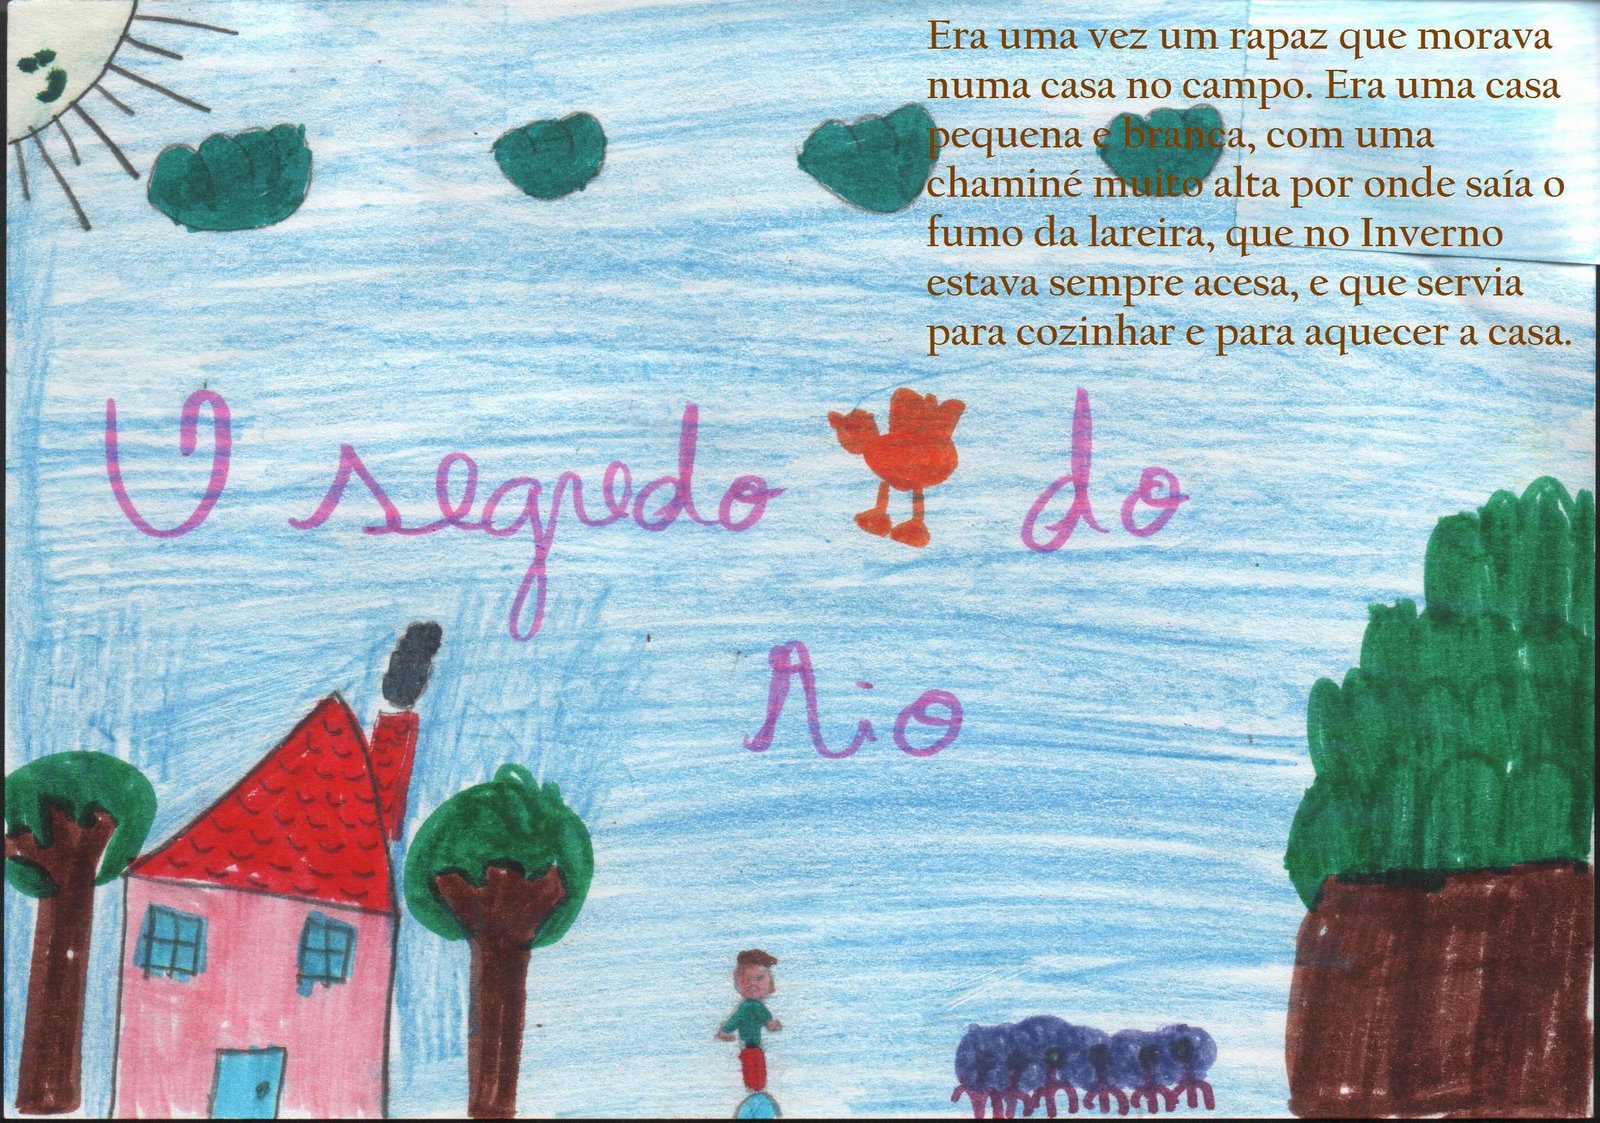 Era uma vez um rapaz que morava
numa casa no campo. Era uma casa
pequena e branca, com uma
chaminé muito alta por onde saía o
fumo da lareira, que no Inverno
estava sempre acesa, e que servia
para cozinhar e para aquecer a casa.
O segredo do
Rio